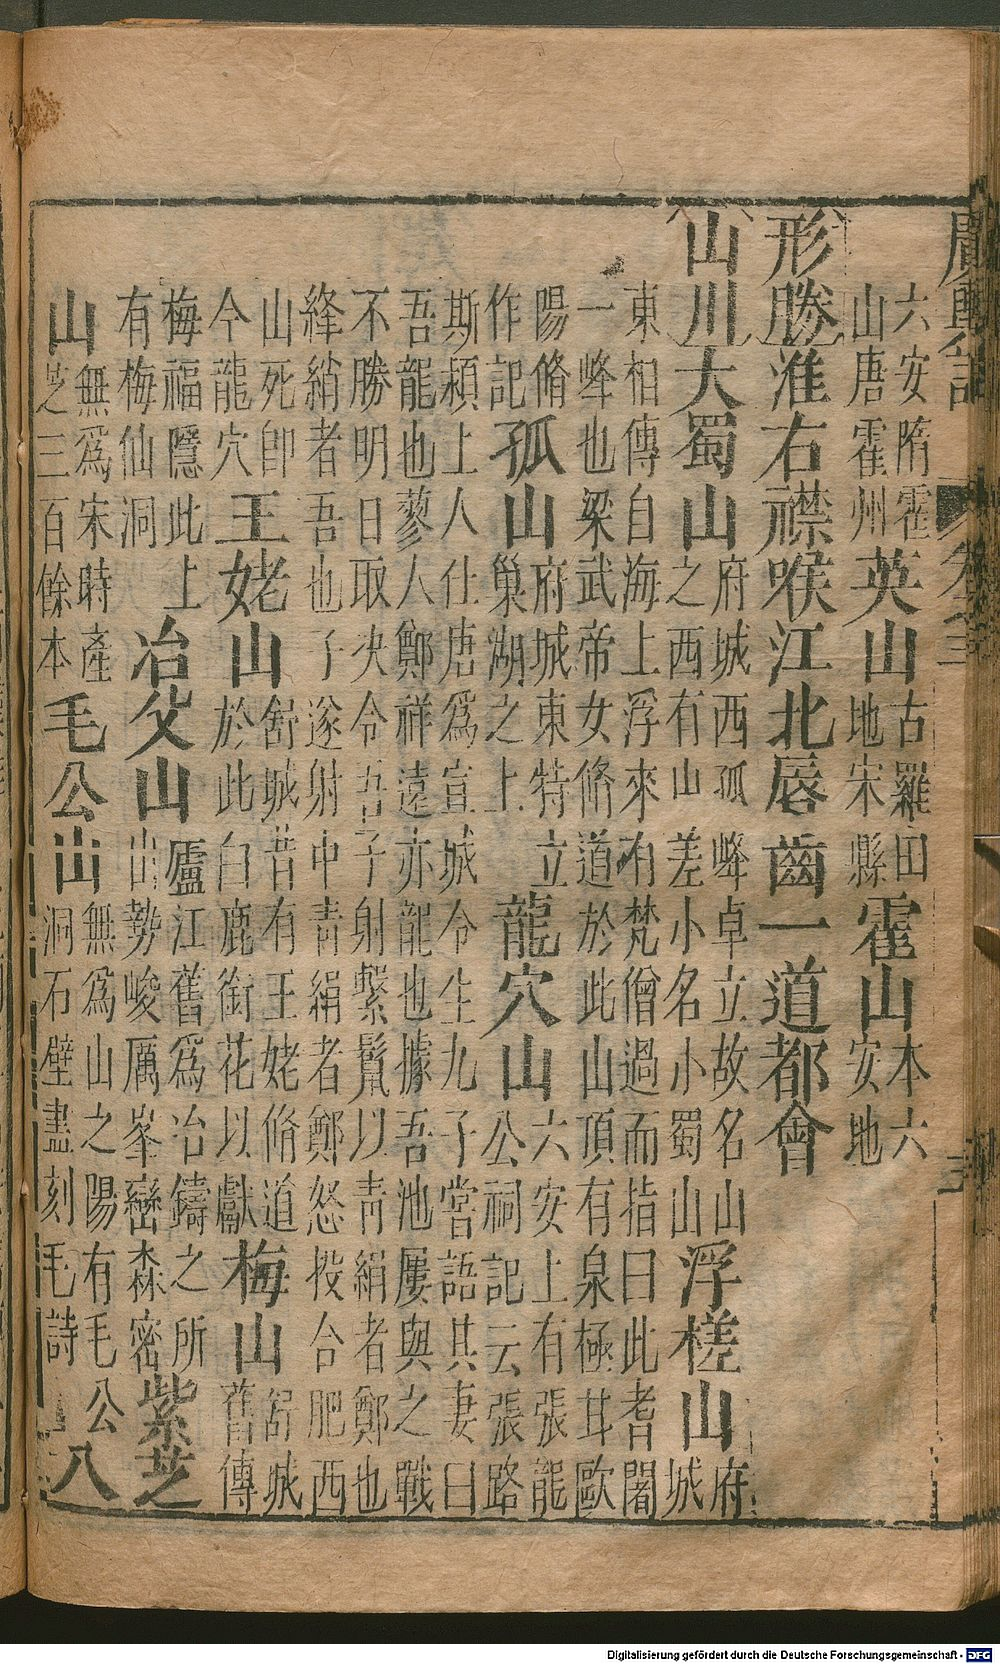 廣輿記 卷之三
六安隋霍山唐霍州英山古羅田地宋縣霍山本六安地
形勝淮右襟喉江北唇齒一道都會
山川大蜀山府城西孤峰卓立故名山之西有山差小名小蜀山浮槎山府城
東相傳自海上浮來有梵僧過而指曰此耆闍
一峰也梁武帝女脩道於此山頂有泉極甘歐
陽脩作記孤山府城東特立巢湖之上龍穴山六安上有張龍公祠記云張路
斯潁上人仕唐爲宣城令生九子嘗語其妻曰
吾龍也蓼人鄭祥遠亦龍也據吾池屢與之戰
不勝明日取决令吾子射繫鬣以青絹者鄭也
絳綃者吾也子遂射中青絹者鄭怒投合肥西
山死卽今龍穴王姥山舒城昔有王姥脩道於此白鹿銜花以獻梅山舒城舊傳
梅福隱此上有梅仙洞冶父山廬江舊爲冶鑄之所山勢峻厲峯巒森密紫芝
山無爲宋時產芝三百餘本毛公山無爲山之陽有毛公洞石壁盡刻毛詩八
Digitalisierung gefördert durch die Deutsche Forschungsgemeinschaft - DFG